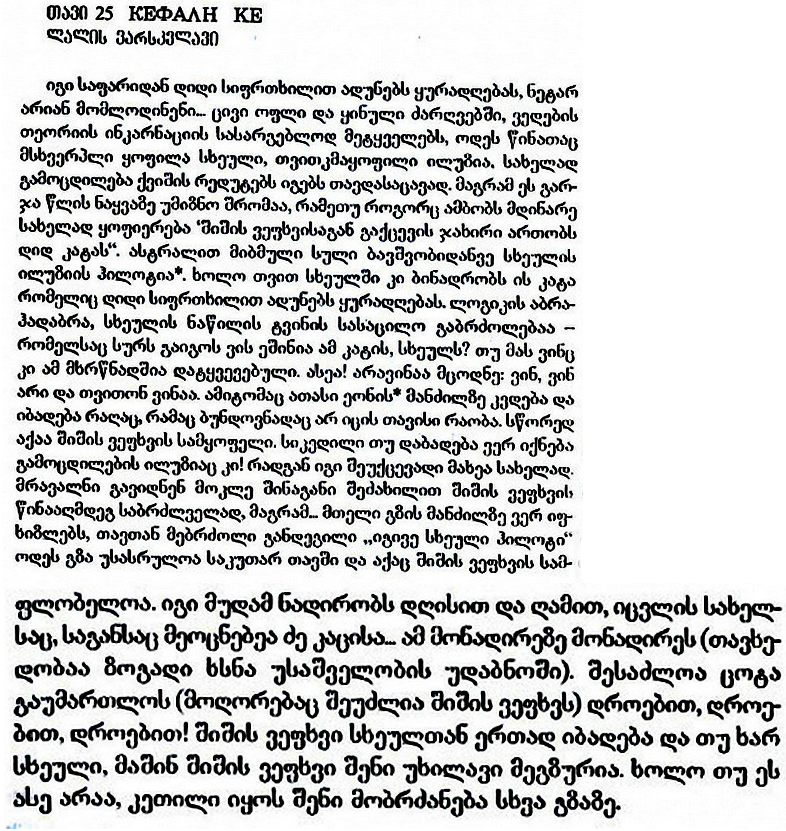 თავი 25 ΚΕΦΑΛΗ ΚΕ
ლალის ვარსკვლავი
იგი საფარიდან დიდი სიფრთხილით ადუნებს ყურადღებას, ნეტარ
არიან მომლოდინენი... ცივი ოფლი და ყინული ძარღვებში, ვედების
თეორიის ინკარნაციის სასარგებლოდ მეტყველებს, ოდეს წინათაც
მსხვერპლი ყოფილა სხეული, თვითკმაყოფილი ილუზია, სახელად
გამოცდილება ქვიშის რედუტებს იგებს თავდასაცავად. მაგრამ ეს გარ-
ჯა წლის ნაყვაზე უმიზნო შრომაა, რამეთუ როგორც ამბობს მდინარე
სახელად ყოფიერება ‘შიშის ვეფხვისაგან გაქცევის ჯახირი ართობს
დიდ კატას“. ასტრალით მიბმული სული ბავშვობიდანვე სხეულის
ილუზიის პილოტია*. ხოლო თვით სხეულში კი ბინადრობს ის კატა
რომელიც დიდი სიფრთხილით ადუნებს ყურადღებას. ლოგიკის აბრა-
ჰადაბრა, სხეულის ნაწილის ტვინის სასაცილო გაბრძოლებაა –
რომელსაც სურს გაიგოს ვის ეშინია ამ კატის, სხეულს? თუ მას ვინც
კი ამ მხრწნადშია დატყვევებული. ასეა! არავინაა მცოდნე: ვინ, ვინ
არი და თვითონ ვინაა. ამიტომაც ათასი ეონის* მანძილზე კვდება და
იბადება რაღაც, რამაც ბუნდოვნადაც არ იცის თავისი რაობა. სწორედ
აქაა შიშის ვეფხვის სამყოფელი. სიკვდილი თუ დაბადება ვერ იქნება
გამოცდილების ილუზიაც კი! რადგან იგი შეუქცევადი მახეა სახელად.
მრავალნი გავიდნენ მოკლე შინაგანი შეძახილით შიშის ვეფხვის
წინააღმდეგ საბრძლველად, მაგრამ... მთელი გზის მანძილზე ვერ იფ-
ხიზლებს, თავთან მებრძოლი განდეგილი „იგივე სხეული პილოტი“
ოდეს გზა უსასრულოა საკუთარ თავში და აქაც შიშის ვეფხვის სამ-
ფლობელოა. იგი მუდამ ნადირობს დღისით და ღამით, იცვლის სახელ-
საც, საგანსაც მეოცნებეა ძე კაცისა... ამ მონადირეზე მონადირეს (თავხე-
დობაა ზოგადი ხსნა უსაშველობის უდაბნოში). შესაძლოა ცოტა
გაუმართლოს (მოღორებაც შეუძლია შიშის ვეფხვს) დროებით, დროე-
ბით, დროებით! შიშის ვეფხვი სხეულთან ერთად იბადება და თუ ხარ
სხეული, მაშინ შიშის ვეფხვი შენი უხილავი მეგზურია. ხოლო თუ ეს
ასე არაა, კეთილი იყოს შენი მობრძანება სხვა გზაზე.